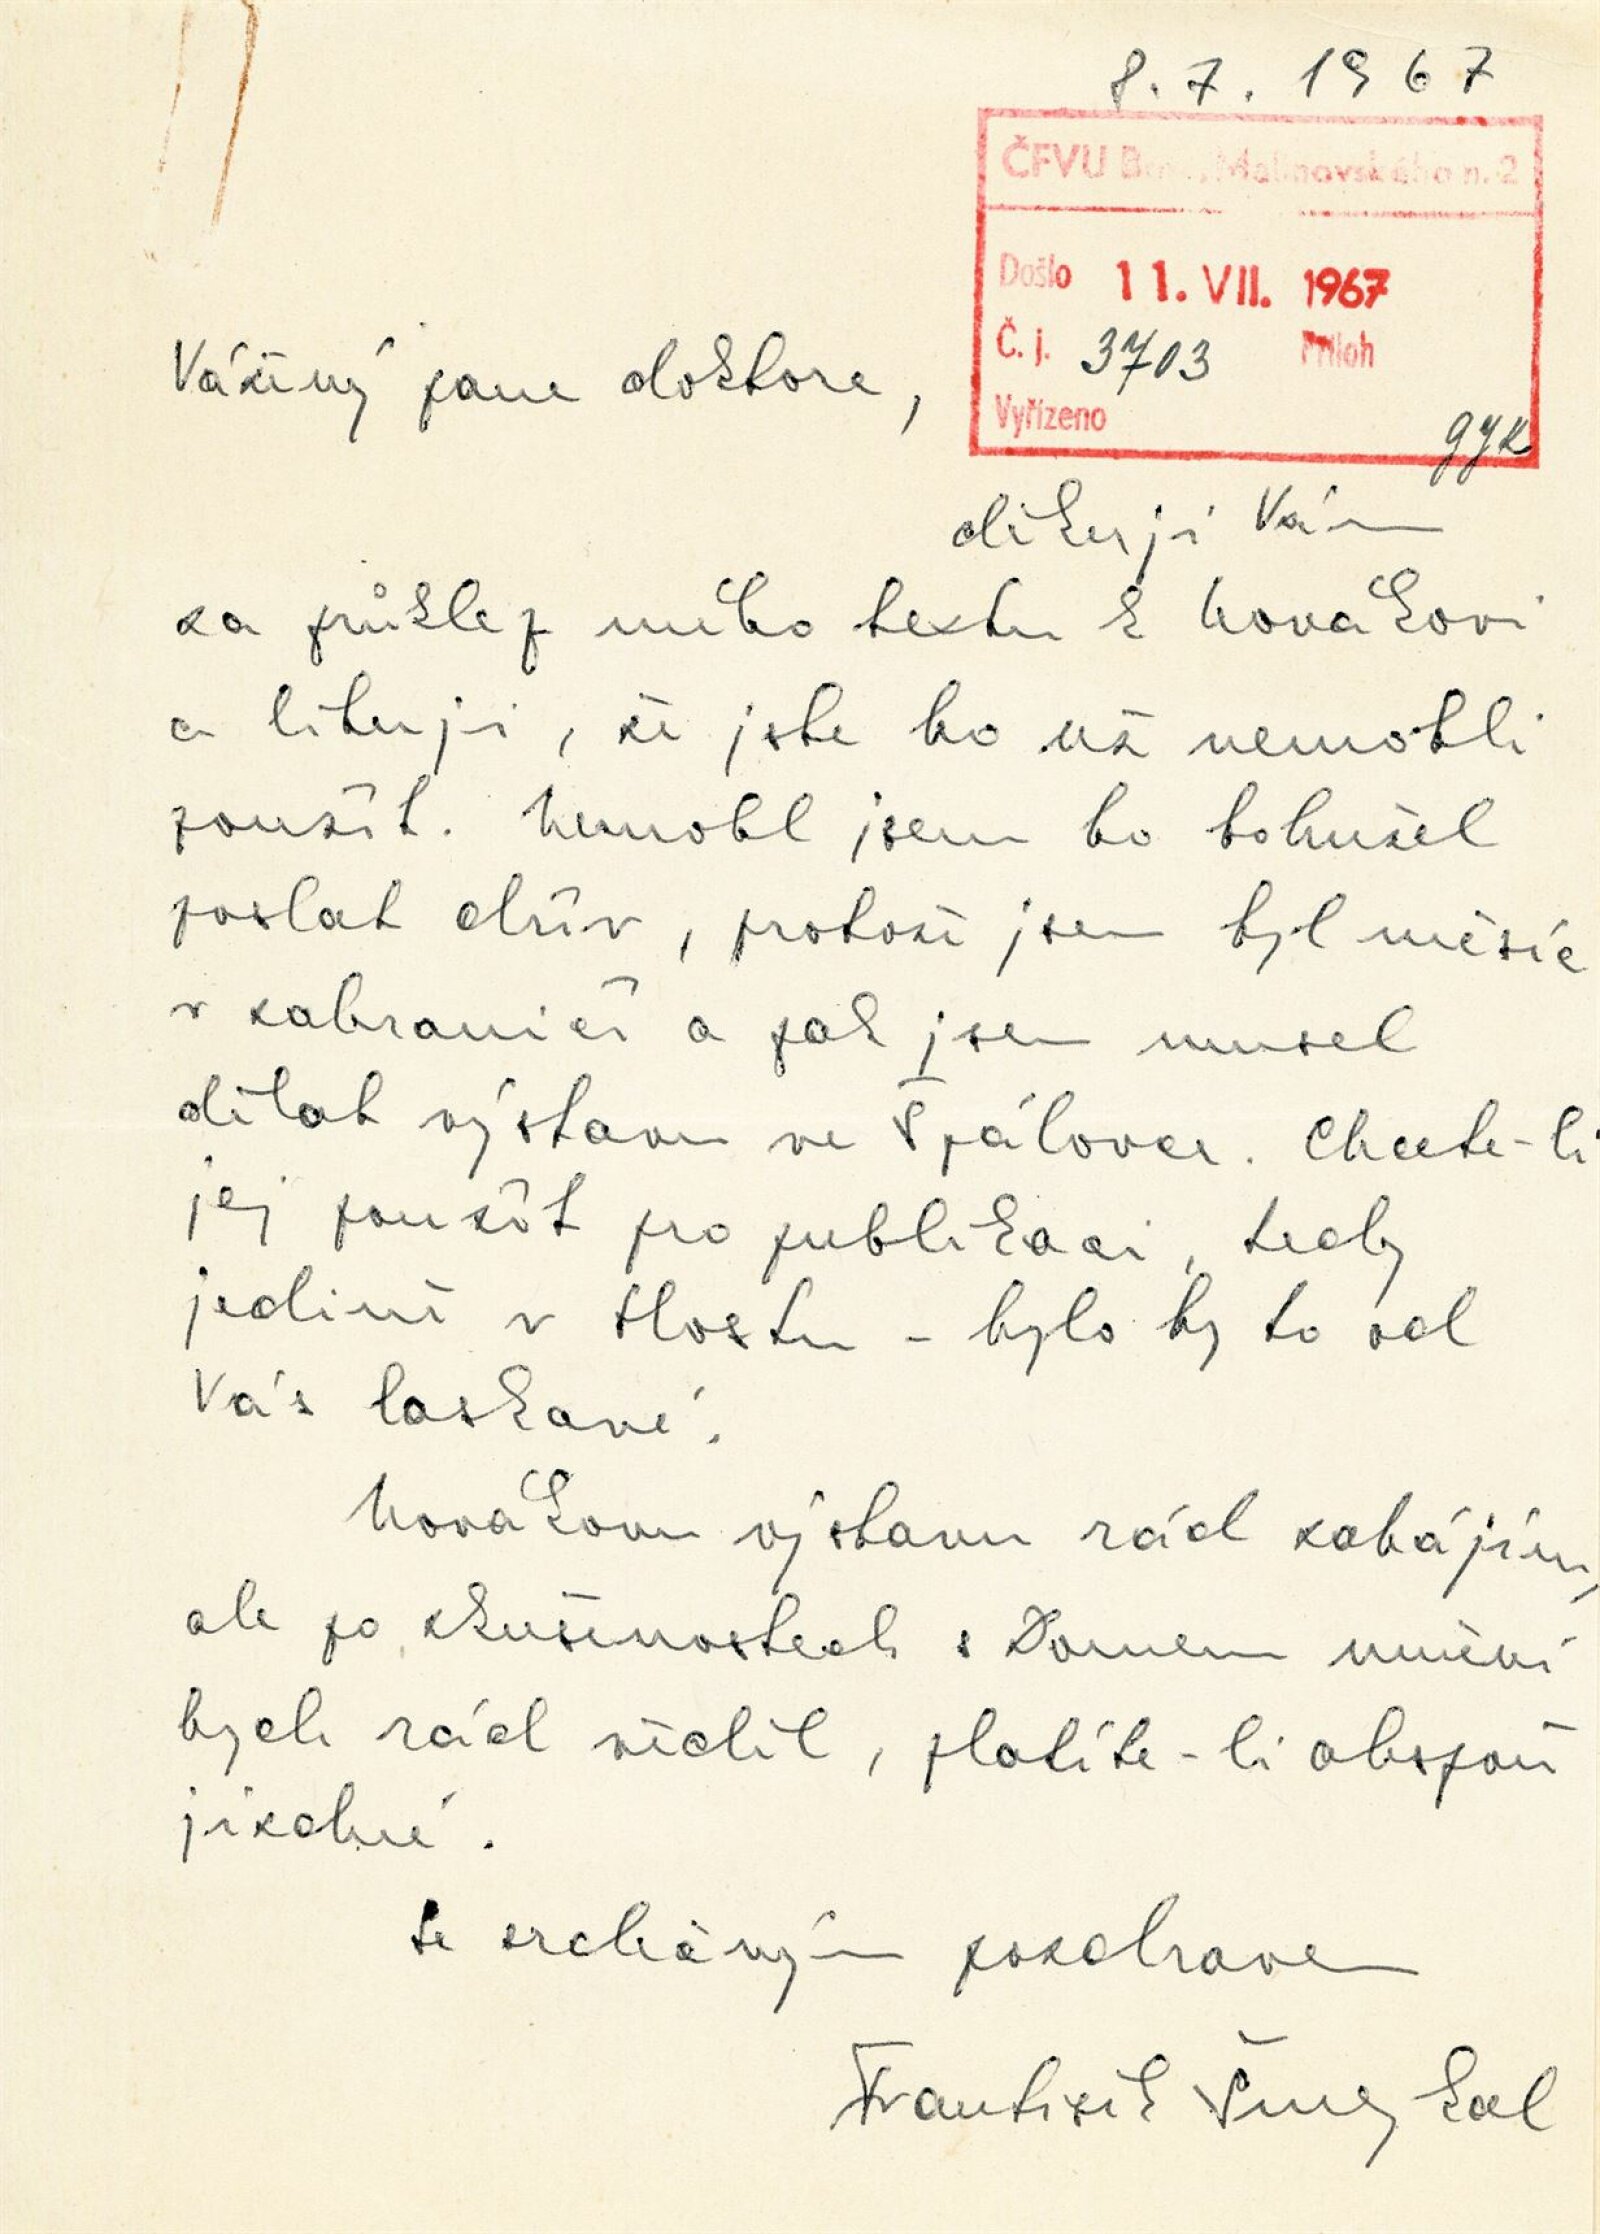 8. 7. 1967
ČFVU Brno, Malinovského n. 2
Došlo 11. VII. 1967
Č. j. 3703 Příloh
Vyřízeno
Vážený pane doktore,
děkuji Vám
za průklep mého textu k Novákovi
a lituji, že jste ho už nemohli
použít. Nemohl jsem ho bohužel
poslat dřív, protože jsem byl měsíc
v zahraničí a pak jsem musel
dělat výstavu ve Špálovce. Chcete-li
jej použít pro publikaci, tedy
jedině v Hostu - bylo by to od
Vás laskavé.
Novákovu výstavu rád zahájím,
ale po zkušenostech s Domem umění
bych rád věděl, platíte-li alespoň
jízdné.
Se srdečným pozdravem
František Šmejkal